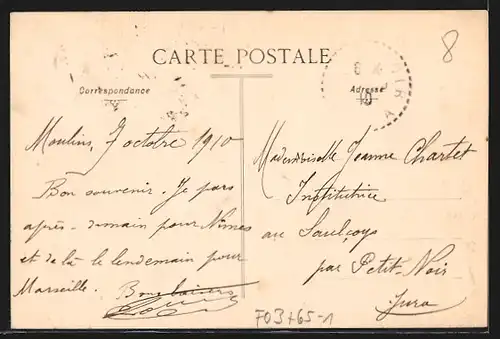 CARTE POSTALE
Correspondance
Moulins, 7 octobre 1910
Bon souvenir. Je pars
après-demain pour Nîmes
et de là le lendemain pour
Marseille. Bons
Adresse
10
8
Mademoiselle Jeanne Chartet
Institutrice
au Saulçoys
par Petit-Noir
Jura
F03765-1